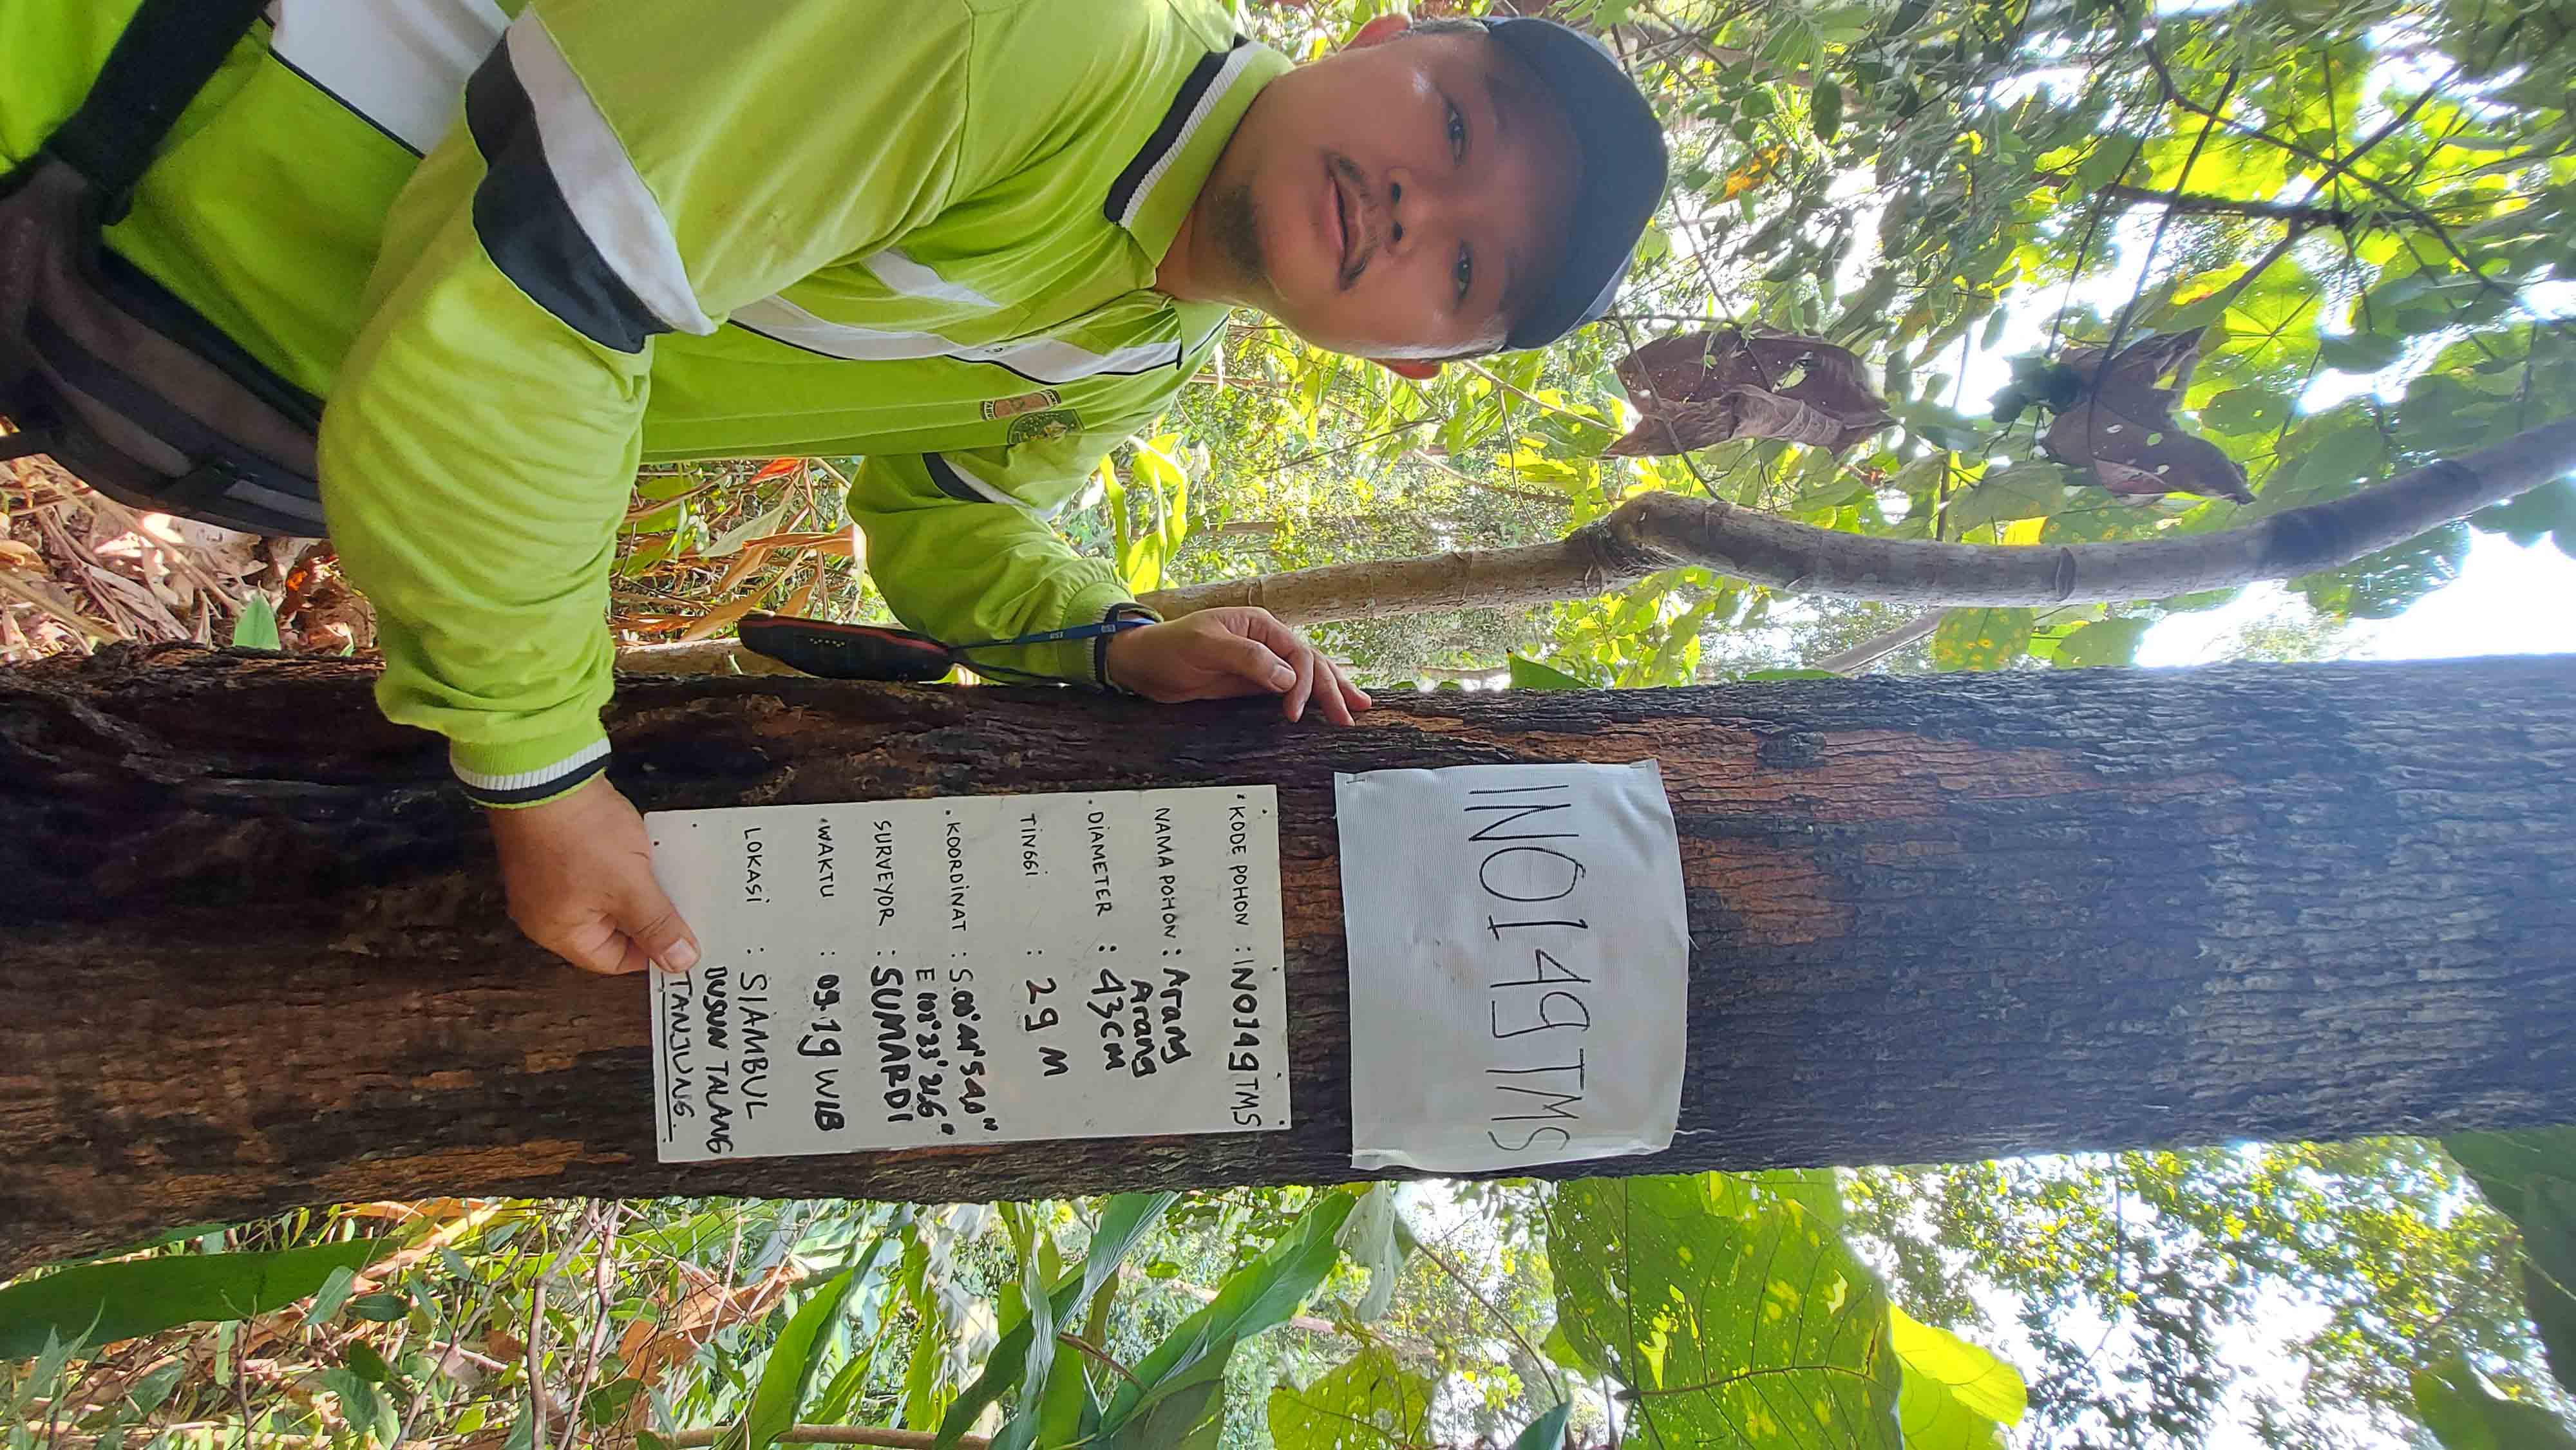 INO149TMS
KODE POHON : INO149TMS
NAMA POHON : Arang
Arang
DIAMETER : 43CM
TINGGI : 29 M
KOORDINAT : S.00°44'54,0"
E 102°23'21,6"
SURVEYOR : SUMARDI
WAKTU : 09.19 WIB
LOKASI : SIAMBUL
DUSUN TALANG
TANJUNG.